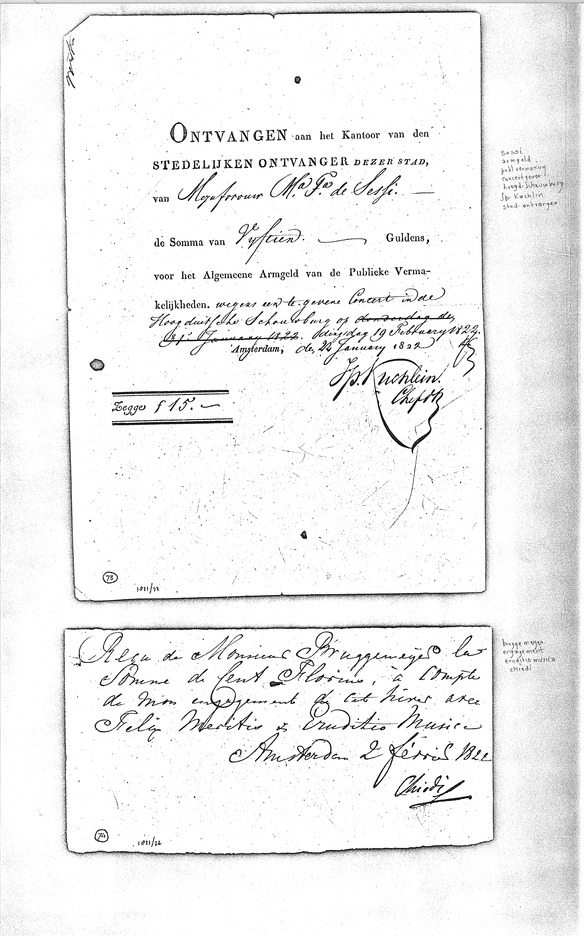 ONTVANGEN aan het Kantoor van den
STEDELIJKEN ONTVANGER DEZER STAD,
van Mejufvrouw Ma. Fa. de Sessi.
de Somma van Vyftien. Guldens,
voor het Algemeene Armgeld van de Publieke Verma-
kelijkheden. wegens een te gevene Concert in de
Hoogduitsche Schouwburg op donderdag de
31e January 1822. dingsdag 19 February 1822.
Amsterdam, de 24 January 1822
Jp. Kuchlein.
Zegge f 15.—
73
1821/22
sessi
armgeld
publ vermaking
concertgever
hoogd. Schouwburg
Jp Kochlin
sted ontvanger
Reçu de Monsieur Bruggemeyer la
Somme de Cent Florins, à compte
de mon engagement de cet hiver avec
Felix Meritis & Eruditio Musica
Amsterdam 2 février 1822
Chiodi
74
1821/22
brugge meyer
engagement
eruditio musica
chiodi